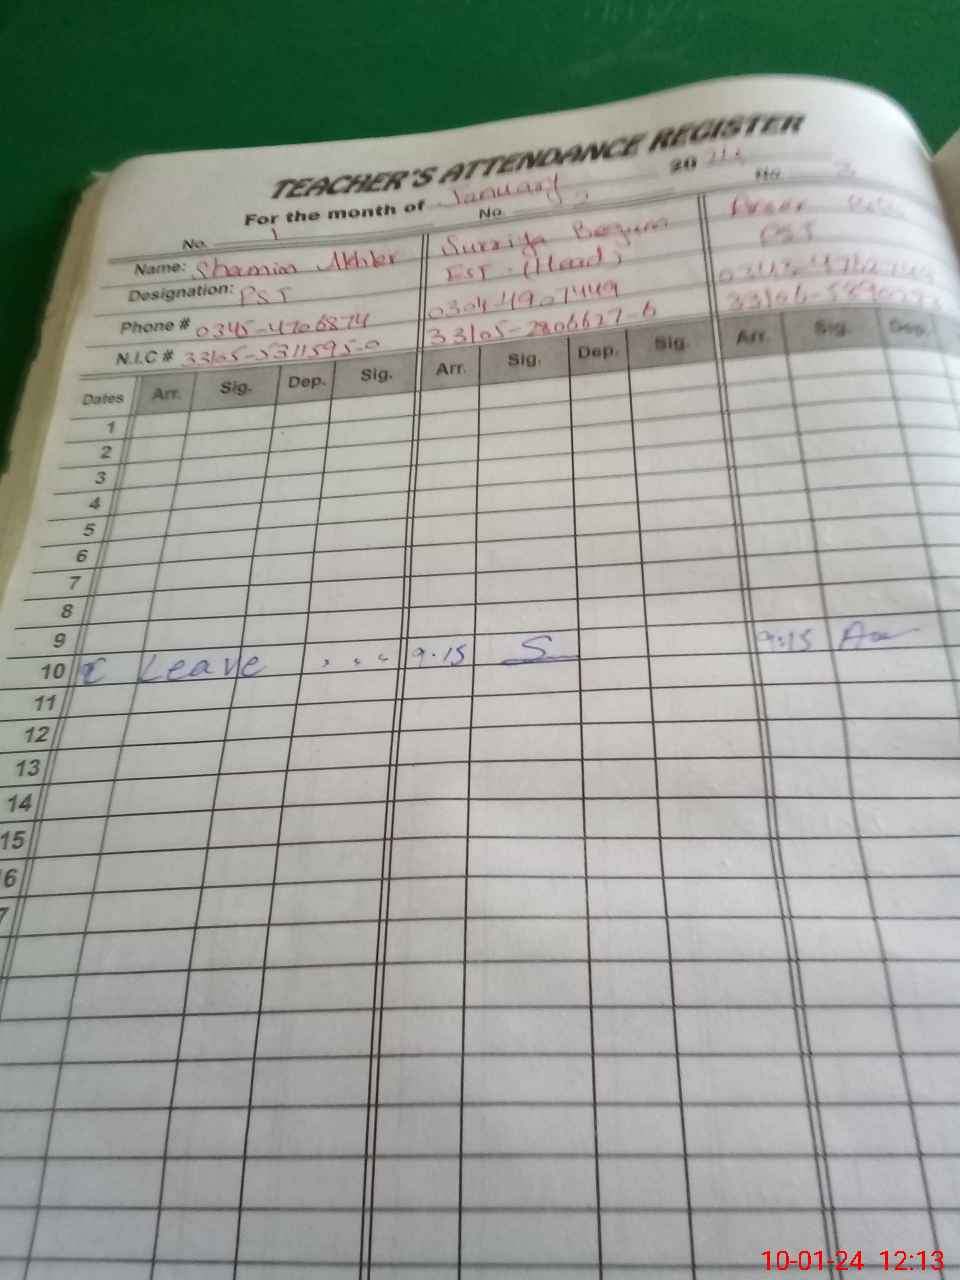 TEACHER'S ATTENDANCE REGISTER
For the month of January 20
No. 1 No. No.
Name: Shamim Akhter Surriya Begum
Designation: PST EST (Head) PST
Phone # 0345-4706874 0304-4907449
N.I.C # 33105-5311595-0 33105-2806627-6
Dates Arr. Sig. Dep. Sig. Arr. Sig. Dep. Sig. Arr. Sig. Dep.
1
2
3
4
5
6
7
8
9
10 Leave 9.15 S 9:15
11
12
13
14
15
6
7
10-01-24 12:13